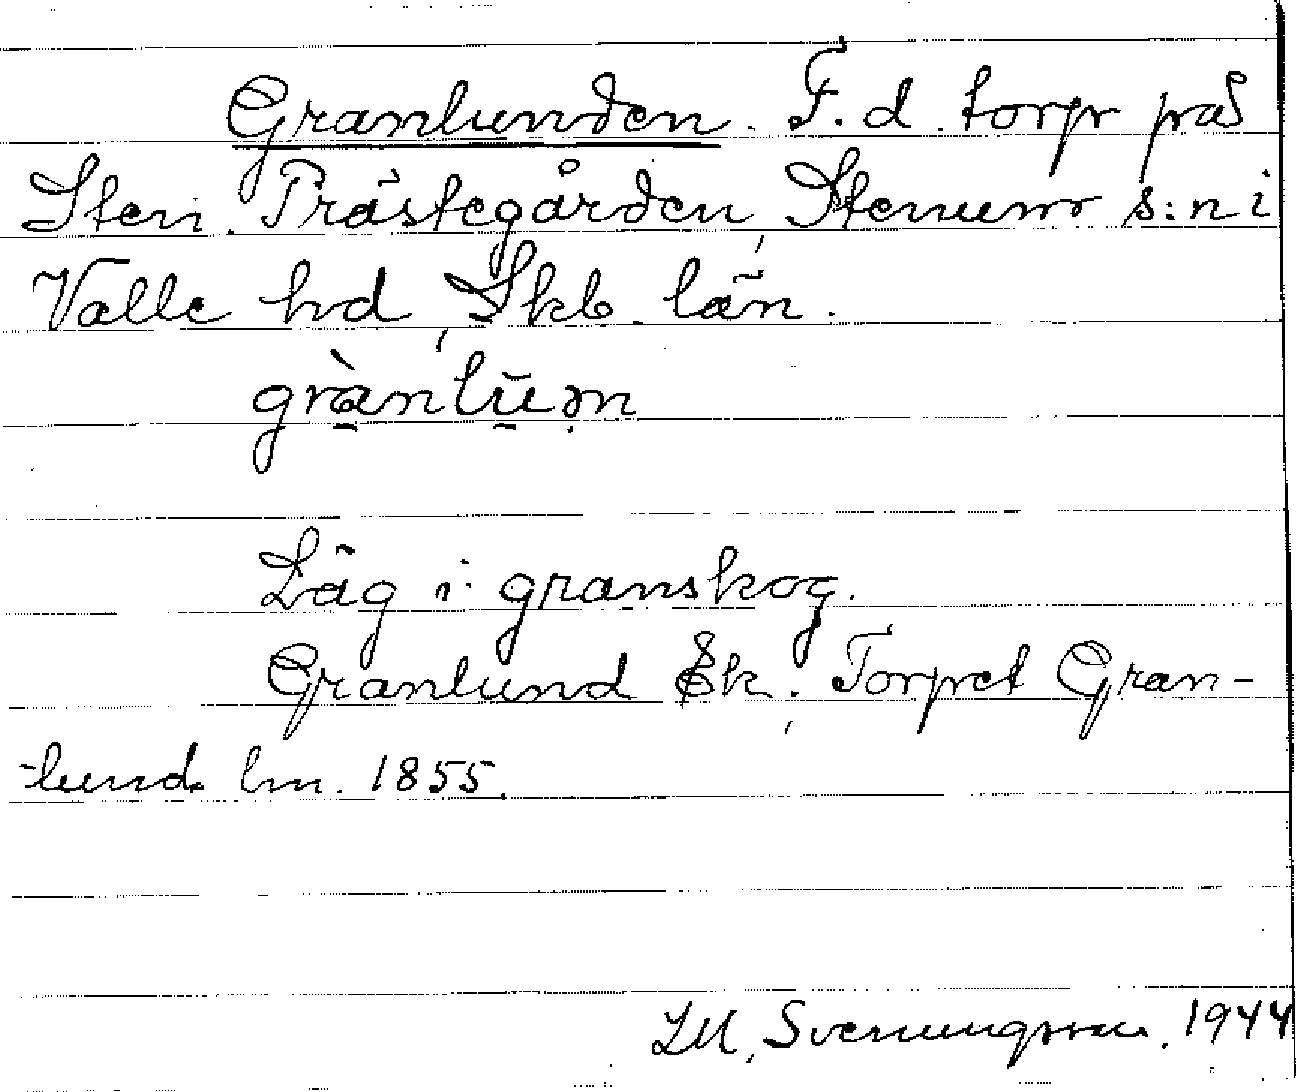 Granlunden. F. d. torp på
Sten. Prästegården, Stenums s:n i
Valle hd, Skb. län.
grànlūm
Låg i granskog.
Granlund Ek. Torpet Gran-
-lund. lm. 1855.
LM, Svenungsson. 1944